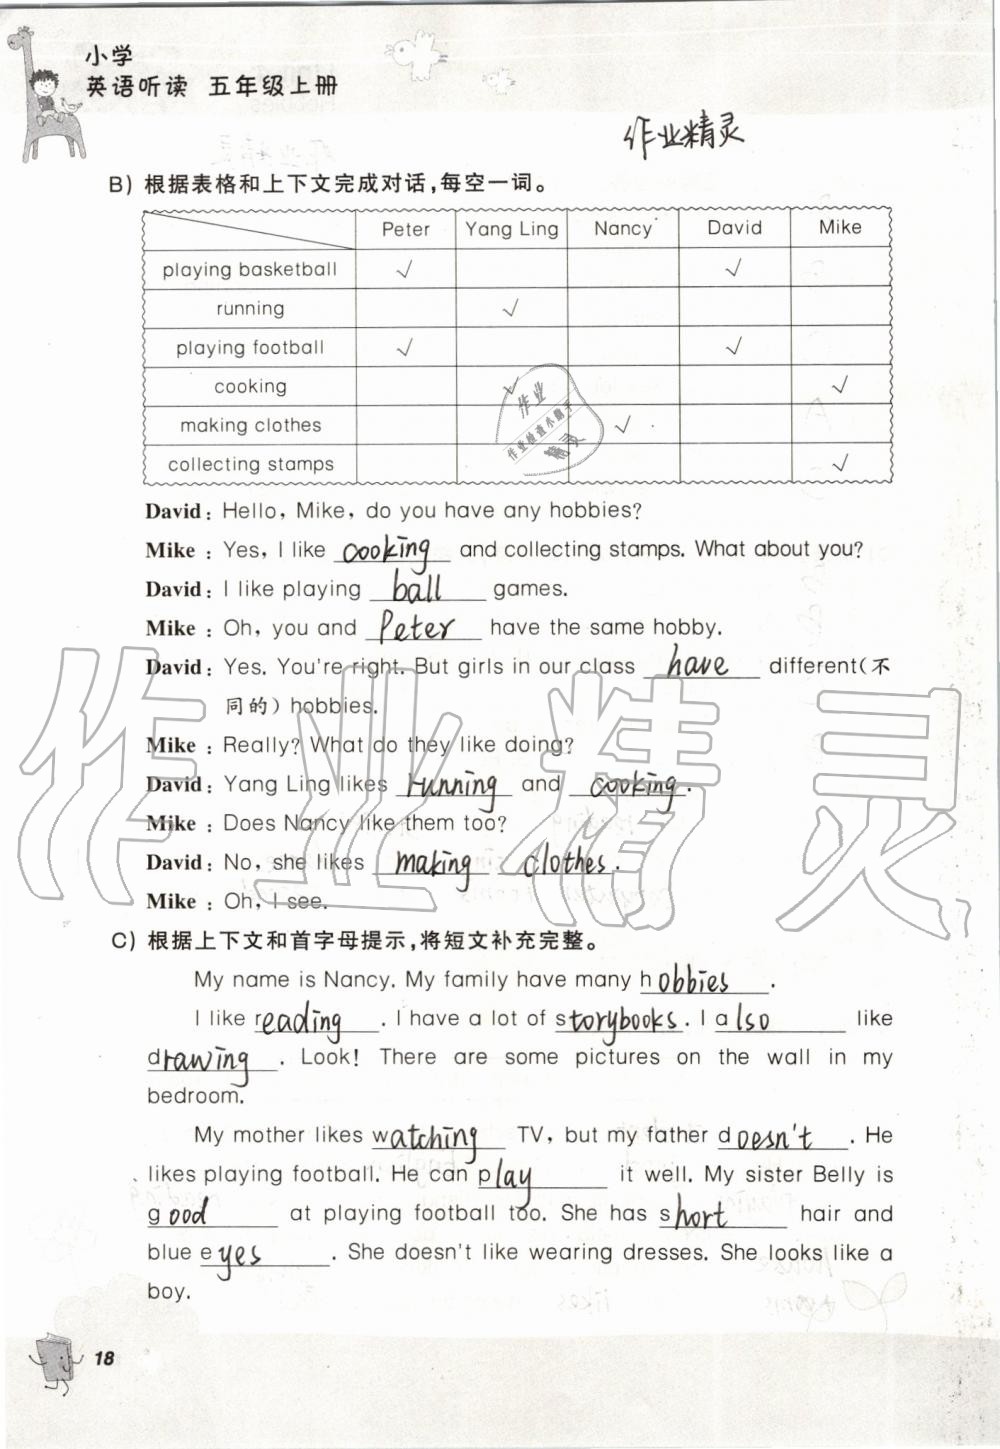 小学
英语听读 五年级上册
作业精灵
B) 根据表格和上下文完成对话,每空一词。
Peter Yang Ling Nancy David Mike
playing basketball √ √
running √
playing football √ √
cooking √ √
making clothes √
collecting stamps √
作业
作业检查小助手
精灵
David: Hello, Mike, do you have any hobbies?
Mike: Yes, I like cooking and collecting stamps. What about you?
David: I like playing ball games.
Mike: Oh, you and Peter have the same hobby.
David: Yes. You're right. But girls in our class have different(不
同的) hobbies.
Mike: Really? What do they like doing?
David: Yang Ling likes running and cooking.
Mike: Does Nancy like them too?
David: No, she likes making clothes.
Mike: Oh, I see.
作业精灵
C) 根据上下文和首字母提示,将短文补充完整。
My name is Nancy. My family have many hobbies.
I like reading. I have a lot of storybooks. I also like
drawing. Look! There are some pictures on the wall in my
bedroom.
My mother likes watching TV, but my father doesn't. He
likes playing football. He can play it well. My sister Belly is
good at playing football too. She has short hair and
blue eyes. She doesn't like wearing dresses. She looks like a
boy.
18